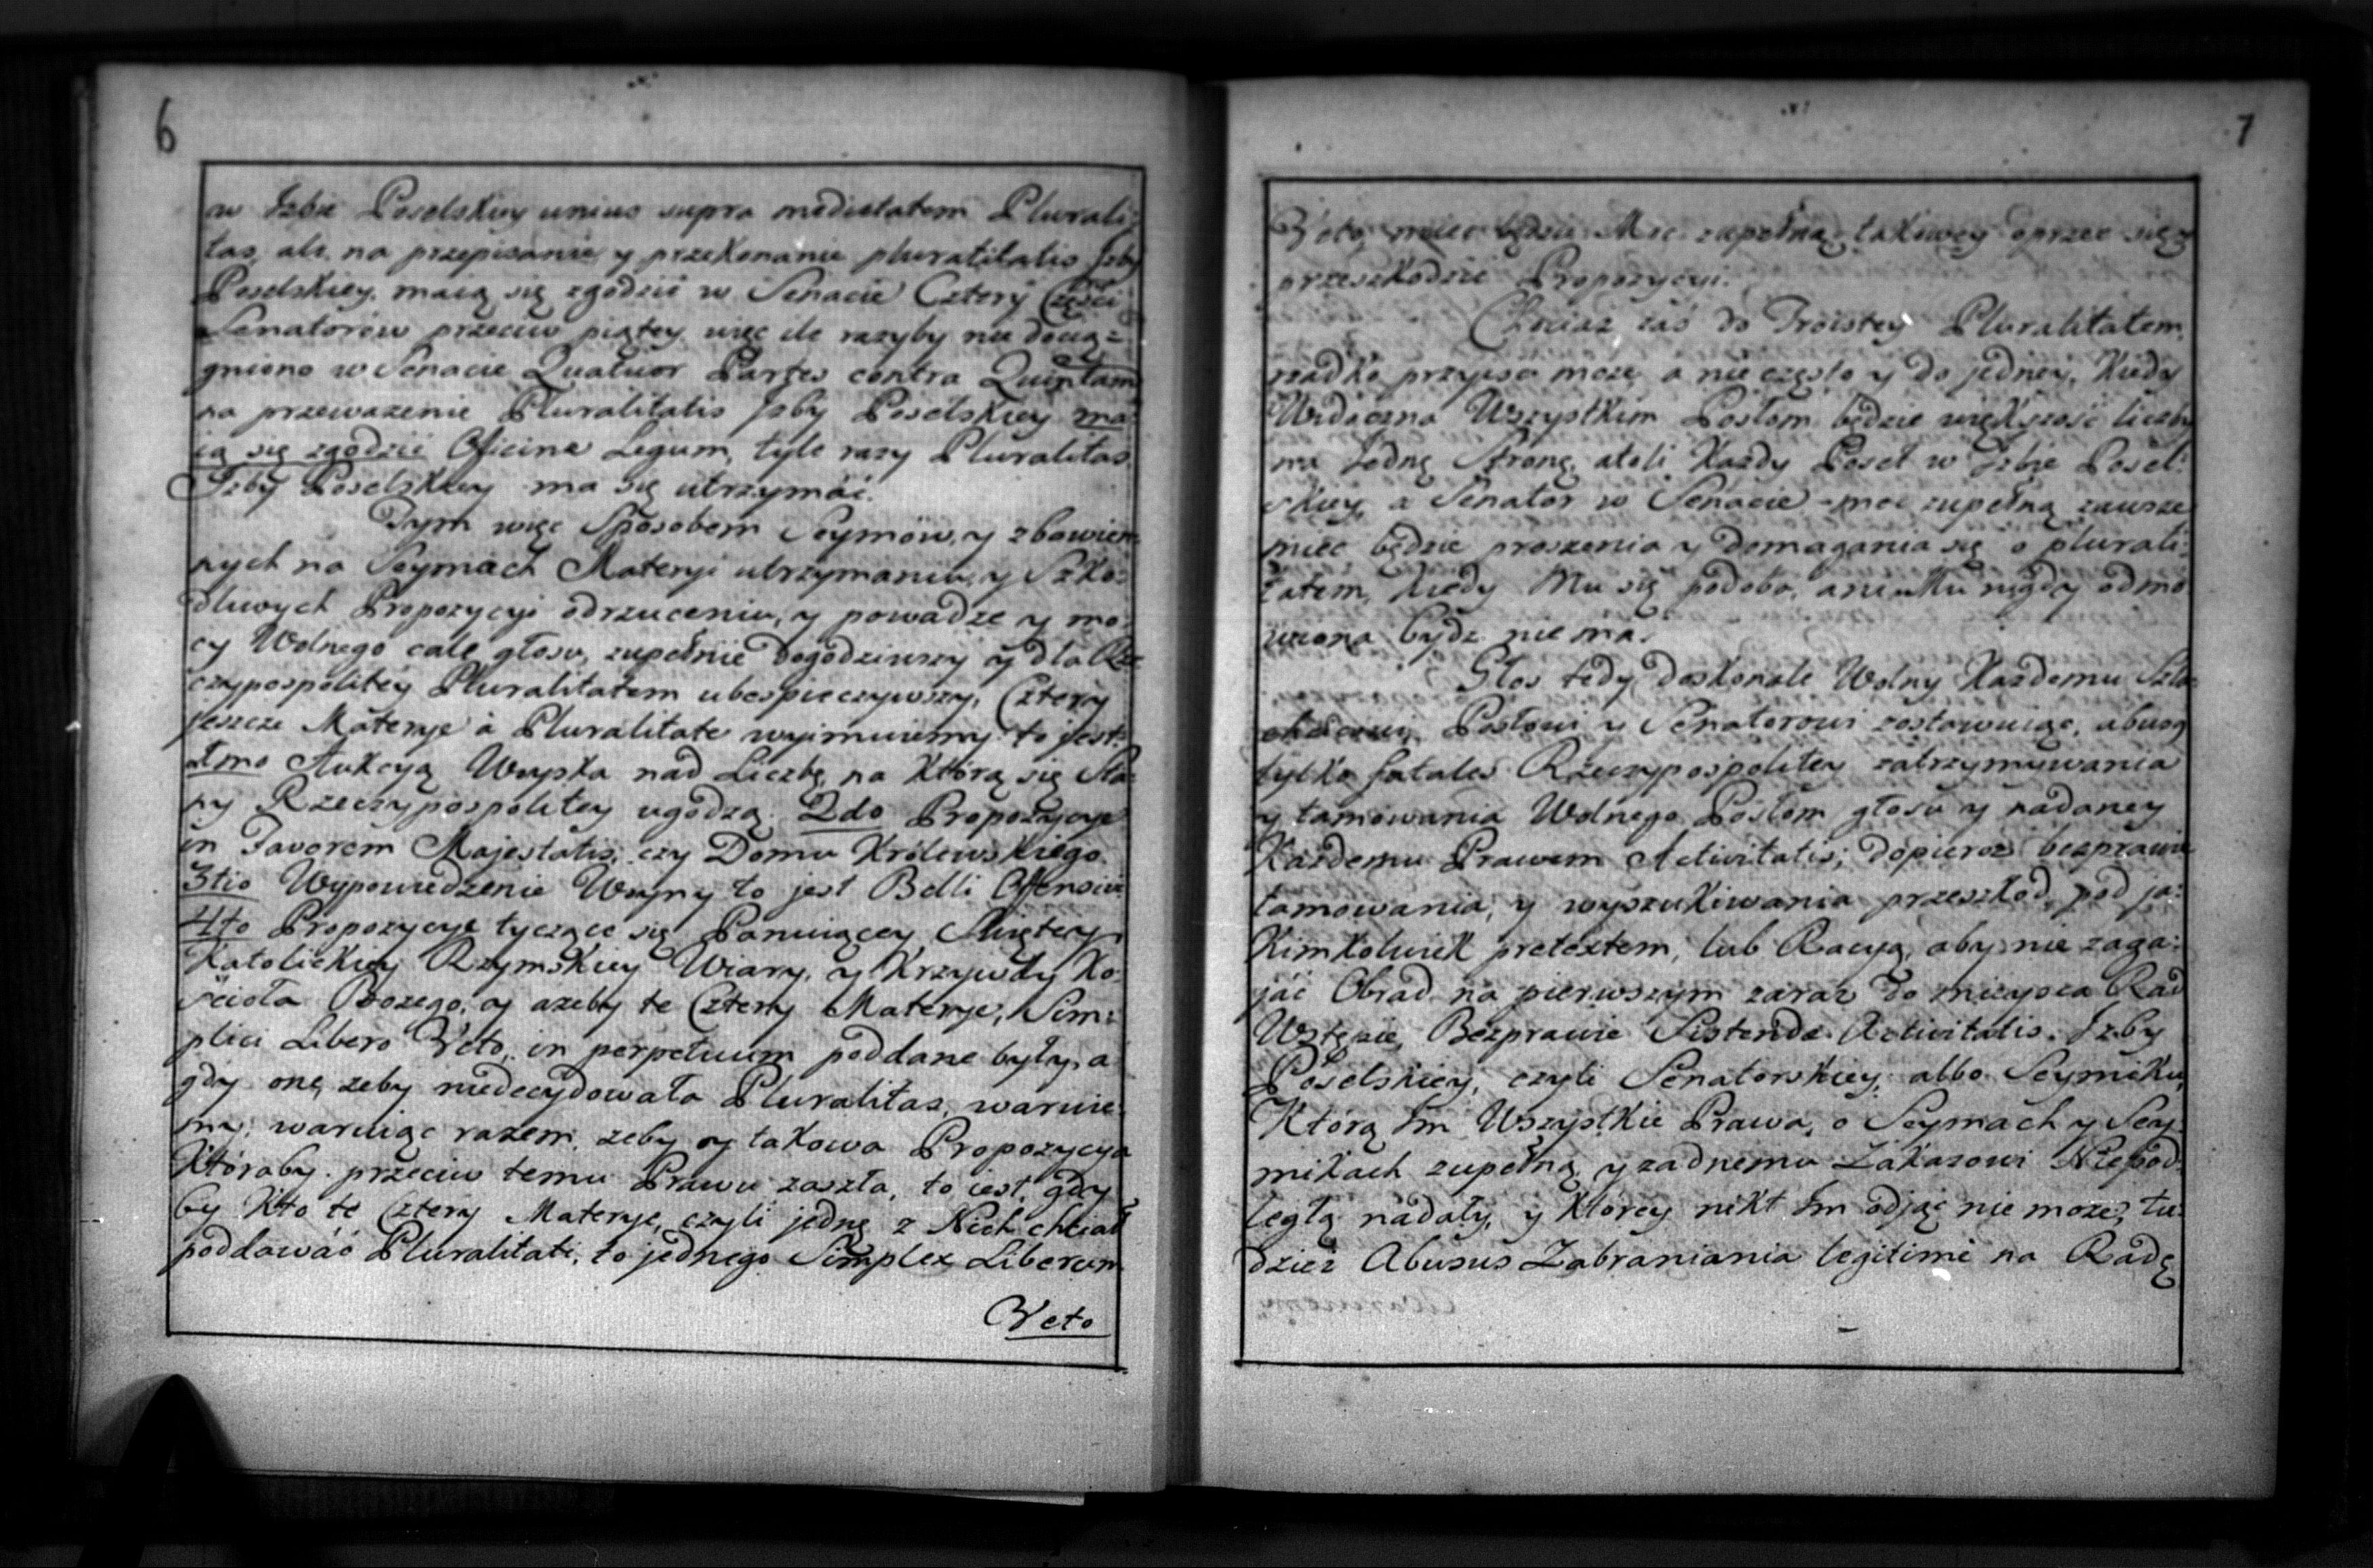 6
w Izbie Poselskiey unius supra medietatem Plurali:
tas, ale na przepisanie y przekonanie pluralitatis Izby
Poselskiey, maią się zgodzić w Senacie Cztery Części
Senatorów przeciw piątey więc ile razyby nie docią=
gniono w Senacie Quatuor Partes contra Quintam
na przeważenie Pluralitatis Izby Poselskiey ma:
ią się zgodzić Oficina Legum, tyle razy Pluralitas
Izby Poselskiey ma się utrzymać.
Tym więc Sposobem Seymów, y zbawien:
nych na Seymach Materyi utrzymaniu, y Szko:
dliwych Propozycyi odrzuceniu, y powadze y mo:
cy Wolnego cale głosu, zupełnie dogodziwszy y dla Rze
czypospolitey Pluralitatem ubespieczywszy, Cztery
jeszcze Materye à Pluralitate wyimuiemy to jest:
1mo Aukcyą Woyska nad Liczbę, na Którą się Sta:
ny Rzeczypospolitey ugodzą. 2do Propozycye
in Favorem Majestatis, czy Domu Królewskiego.
3tio Wypowiedzenie Woyny to jest Belli Offensivi
4to Propozycye tyczące się Panuiącey Swiętey
Katolickiey Rzymskiey Wiary, y Krzywdy Ko:
ścioła Bożego, y azeby te Cztery Materye, Sim:
plici Libero Veto, in perpetuum poddane były, a
gdy one, zeby niedecydowała Pluralitas, waruie:
my: waruiąc razem, zeby y takowa Propozycya
Któraby przeciw temu Prawu zaszła, to iest, gdy
by Kto te Cztery Materye, czyli jedną z Nich chciał
poddawać Pluralitati, to jednego Simplex Liberum
Veto
7
Veto, mieć będzie Moc zupełną takowey oprzeć się y
przeszkodzić Propozycyi.
Chociaz zaś do Troistey Pluralitatem,
rzadko przyiść może, a nie często y do jedney, Kiedy
Widoczna Wszystkim Posłom będzie większość liczby
na Jedną Stronę, atoli Każdy Poseł w Izbie Posel:
skiey, a Senator w Senacie moc zupełną zawsze
mieć będzie proszenia y domagania się o plurali:
tatem, kiedy Mu się podoba, a nikomu nigdy odmó
wiona bydz nie ma.
Głos tedy doskonale Wolny Każdemu Szla:
checowi, Posłowi y Senatorowi zostawuiąc, abusy
tylko fatales Rzeczypospolitey zatrzymywania
y tamowania Wolnego Posłom głosu y nadaney
Każdemu Prawem Activitatis; dopieroz bezprawie
tamowania, y wyszukiwania przeszkod, pod ja:
Kimkolwiek pretextem, lub Racyą, aby nie zaga:
jać Obrad na pierwszym zaraz do mieysca Rad
Wstępie, Bezprawie Sistendae Activitatis Izby
Poselskiey, czyli Senatorskiey, albo Seymiku,
Którą Im Wszystkie Prawa, o Seymach y Sey:
mikach zupełną y zadnemu Zakazowi Niepod:
ległą nadały, y Którey nikt Im odjąć nie moze, tu:
dzież Abusus Zabraniania legitimé na Radę